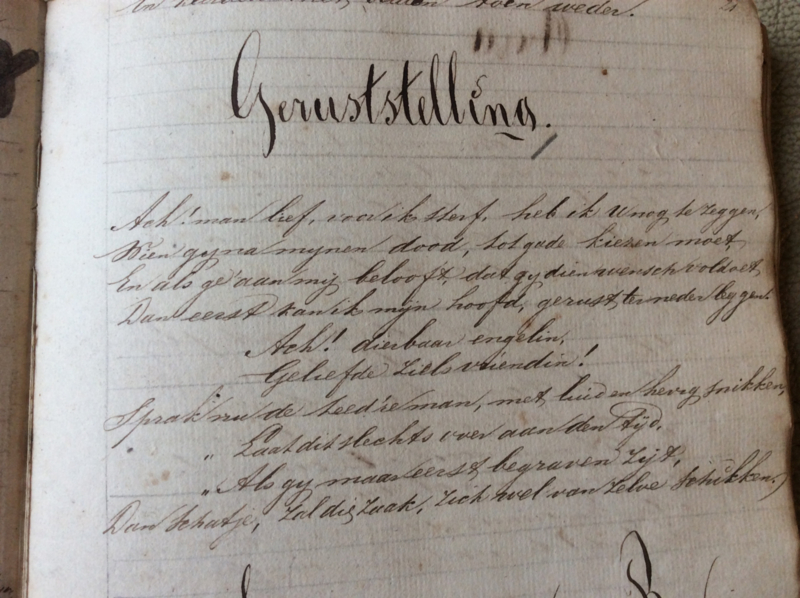 weder.
21
Geruststelling.
Ach! man lief, voor ik sterf, heb ik U nog te zeggen,
Wien gy na mynen dood, tot gade kiezen moet,
En als ge' aan mij belooft, dat gy dien wensch voldoet,
Dan eerst kan ik mijn hoofd, gerust ter neder leggen.
Ach! dierbaar engelin,
Geliefde Zielsvriendin!
Sprak nu de teed're man, met luid en hevig snikken,
„ Laat dit slechts over aan den tijd,
„ Als gy maar eerst begraven zijt,
Dan Schatje, Zal die Zaak, Zich wel van Zelve Schikken.)